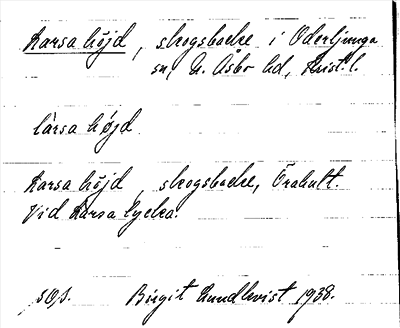 Larsa höjd, skogsbacke i Oderljunga
sn, N. Åsbo hd, Krist. l.
làrsa hǫjd
Larsa höjd, skogsbacke, Örahult.
Vid Larsa lycka.
SOJ. Birgit Lundkvist 1938.